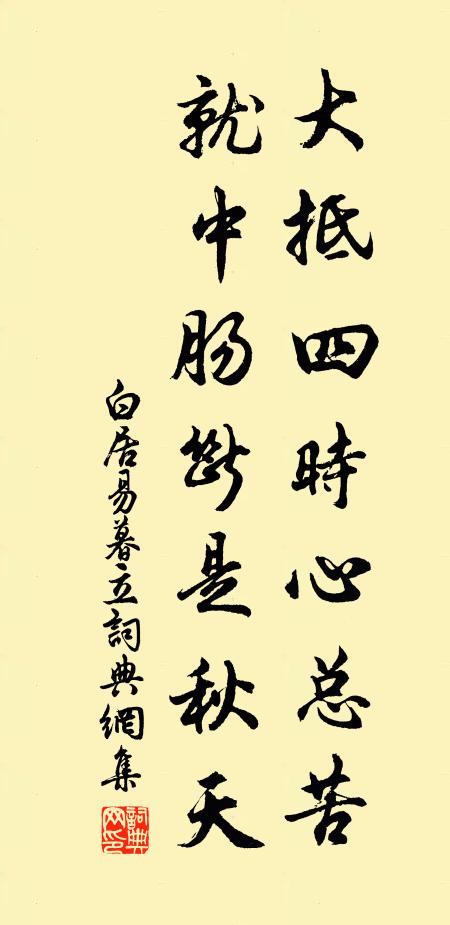 大抵四時心总苦
就中肠斷是秋天
白居易暮立詞典網集
詞典网印